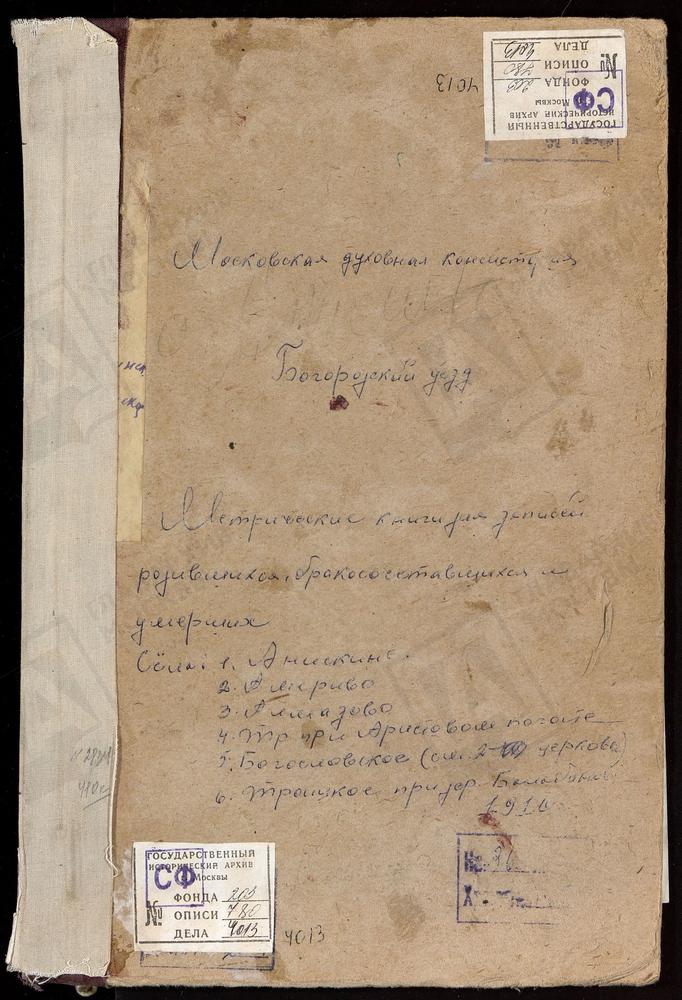 ГОСУДАРСТВЕННЫЙ
ИСТОРИЧЕСКИЙ АРХИВ
г. Москвы
СФ
ФОНДА 203
№ ОПИСИ 780
ДЕЛА 4013
4013
Московская духовная консистория
Богородский уезд
Метрические книги для записей
родившихся, бракосочетавшихся и
умерших
Сёла: 1. Анискино
2. Амирево
3. Алмазово
4. Тр при Аристовом погосте
5. Богословское (см. 2 церковь)
6. Троицкое при дер.
1910
ГОСУДАРСТВЕННЫЙ
ИСТОРИЧЕСКИЙ АРХИВ
г. Москвы
СФ
ФОНДА 203
№ ОПИСИ 780
ДЕЛА 4013
4013